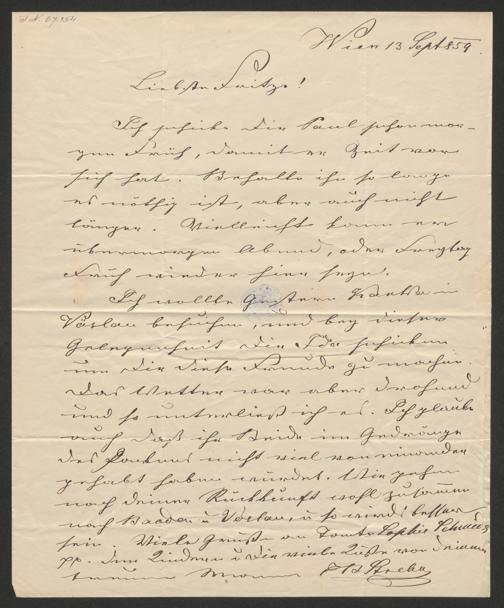 Wien 13 Sept 859.
Liebste Fritze!
Ich schicke Dir Paul schon mor-
gen Früh, damit er Zeit vor
sich hat. Behalte ihn so lange
es nöthig ist, aber auch nicht
länger. Vielleicht kann er
übermorgen Abend, oder Freytag
Früh wieder hier seyn.
Ich wollte Gestern in
Vöslau besuchen, und bey dieser
Gelegenheit Dir Ida schicken
um Dir diese Freude zu machen.
Das Wetter war aber drohend
und so unterließ ich es. Ich glaube
auch daß ihr Beide im Gedränge
des nicht viel voneinander
gehabt haben würdet. Wir gehen
nach deiner Rückkunft wohl zusamm
nach Baaden u Vöslau, u so wird's besser
sein. Viele Grüße an Tante Sophie
pp. den Kindern u Dir viele Küße von Deinem
treuen